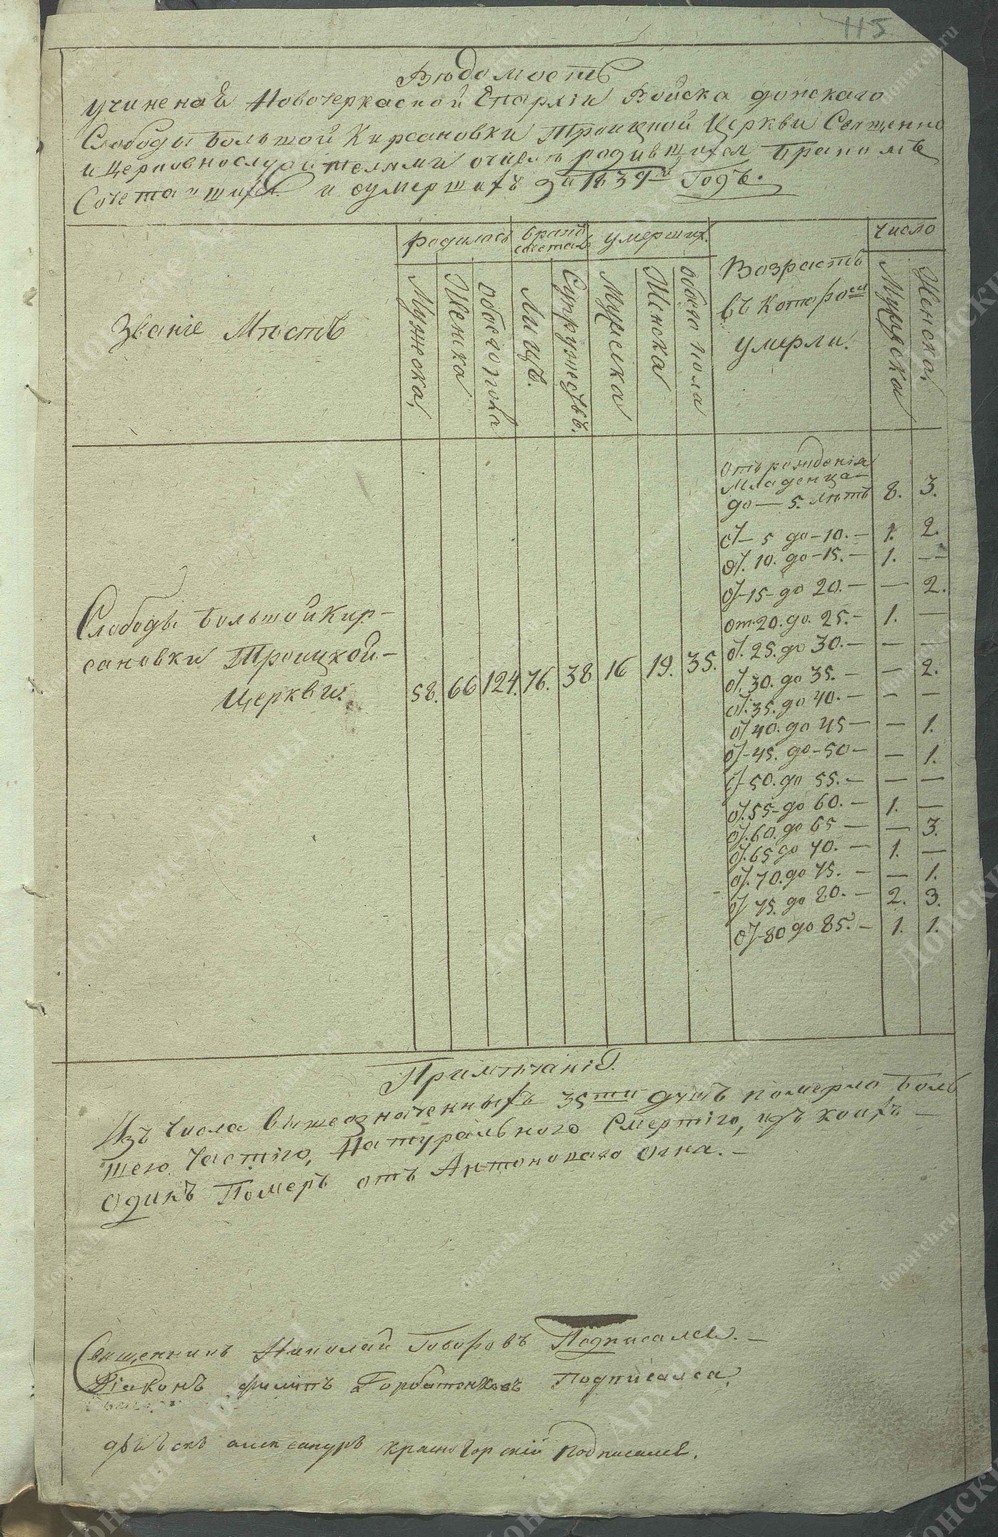 115
Вѣдомость
учиненая Новочеркаской Епархіи Войска донскаго
Слободы Большой Кирсановки Троицкой Церкви Священно
и Церковнослужителями о числѣ родившихся Бракомъ
Сочетавшихся и умершихъ за 1839й Годъ.
Званіе Мѣстъ
родилось
бракъ сочетал
умершихъ
Возрастъ въ которомъ умерли.
число
Мужеска
Женска
обоего пола
Лицъ.
Супружествъ.
Мужеска
Женска
обоего пола
Мужеска
Женска
Слободы Большой Кир-
сановки Троицкой-
Церкви.
58. 66 124. 76. 38 16 19. 35.
отъ рожденія
Младенца
до — 5. лѣтъ 8. 3.
от 5 до 10. — 1. 2.
от 10. до 15. — 1. —
от 15 до 20. — — 2.
от 20. до 25. — 1. —
от 25. до 30. — — —
от 30. до 35. — — 2.
от 35. до 40. — — —
от 40. до 45 — — 1.
от 45. до 50 — — 1.
от 50. до 55. — — —
от 55 до 60. — 1. —
от 60. до 65 — — 3.
от 65 до 70. — 1. —
от 70. до 75. — — 1.
от 75. до 80. — 2. 3.
от 80 до 85. — 1. 1.
Примѣчаніе.
Изъ числа вышеозначенныхъ 35ти душъ померло Боль
шего частію, Натуральною Смертію, изъ коихъ —
одинъ Померъ отъ Антонова огня. —
Священникъ Николай Говоровъ Подписался. —
Діаконъ Филипъ Горбатенковъ Подписался.
дьячекъ александръ красногорскій подписался.